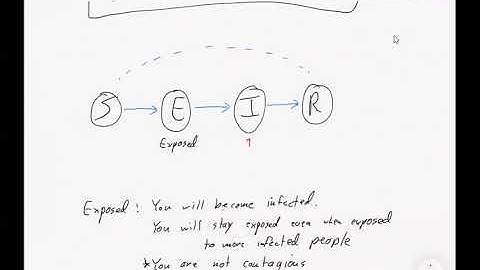 S E I R
Exposed
Exposed: You will become infected.
You will stay exposed even when exposed
to more infected people
*You are not contagious